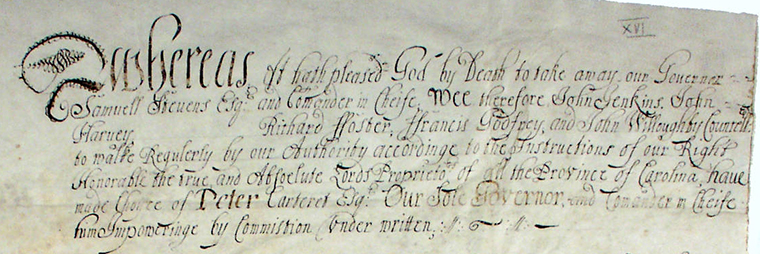 XVI
Whereas it hath pleased God by Death to take away our Governor
Samuell Stevens Esqr and Comander in Cheife, Wee therefore John Jenkins, John
Harvey Richard Ffoster, Ffrancis Godfrey, and John Willoughby Councell:
to walke Regulerly by our Authority accordinge to the Instructions of our Right
Honorable the true and Absolute Lords Proprietors of all the Province of Carolina, have
made Choice of Peter Carteret Esqr Our Sole Governor, and Comander in Cheife
him Impoweringe by Commission Under written